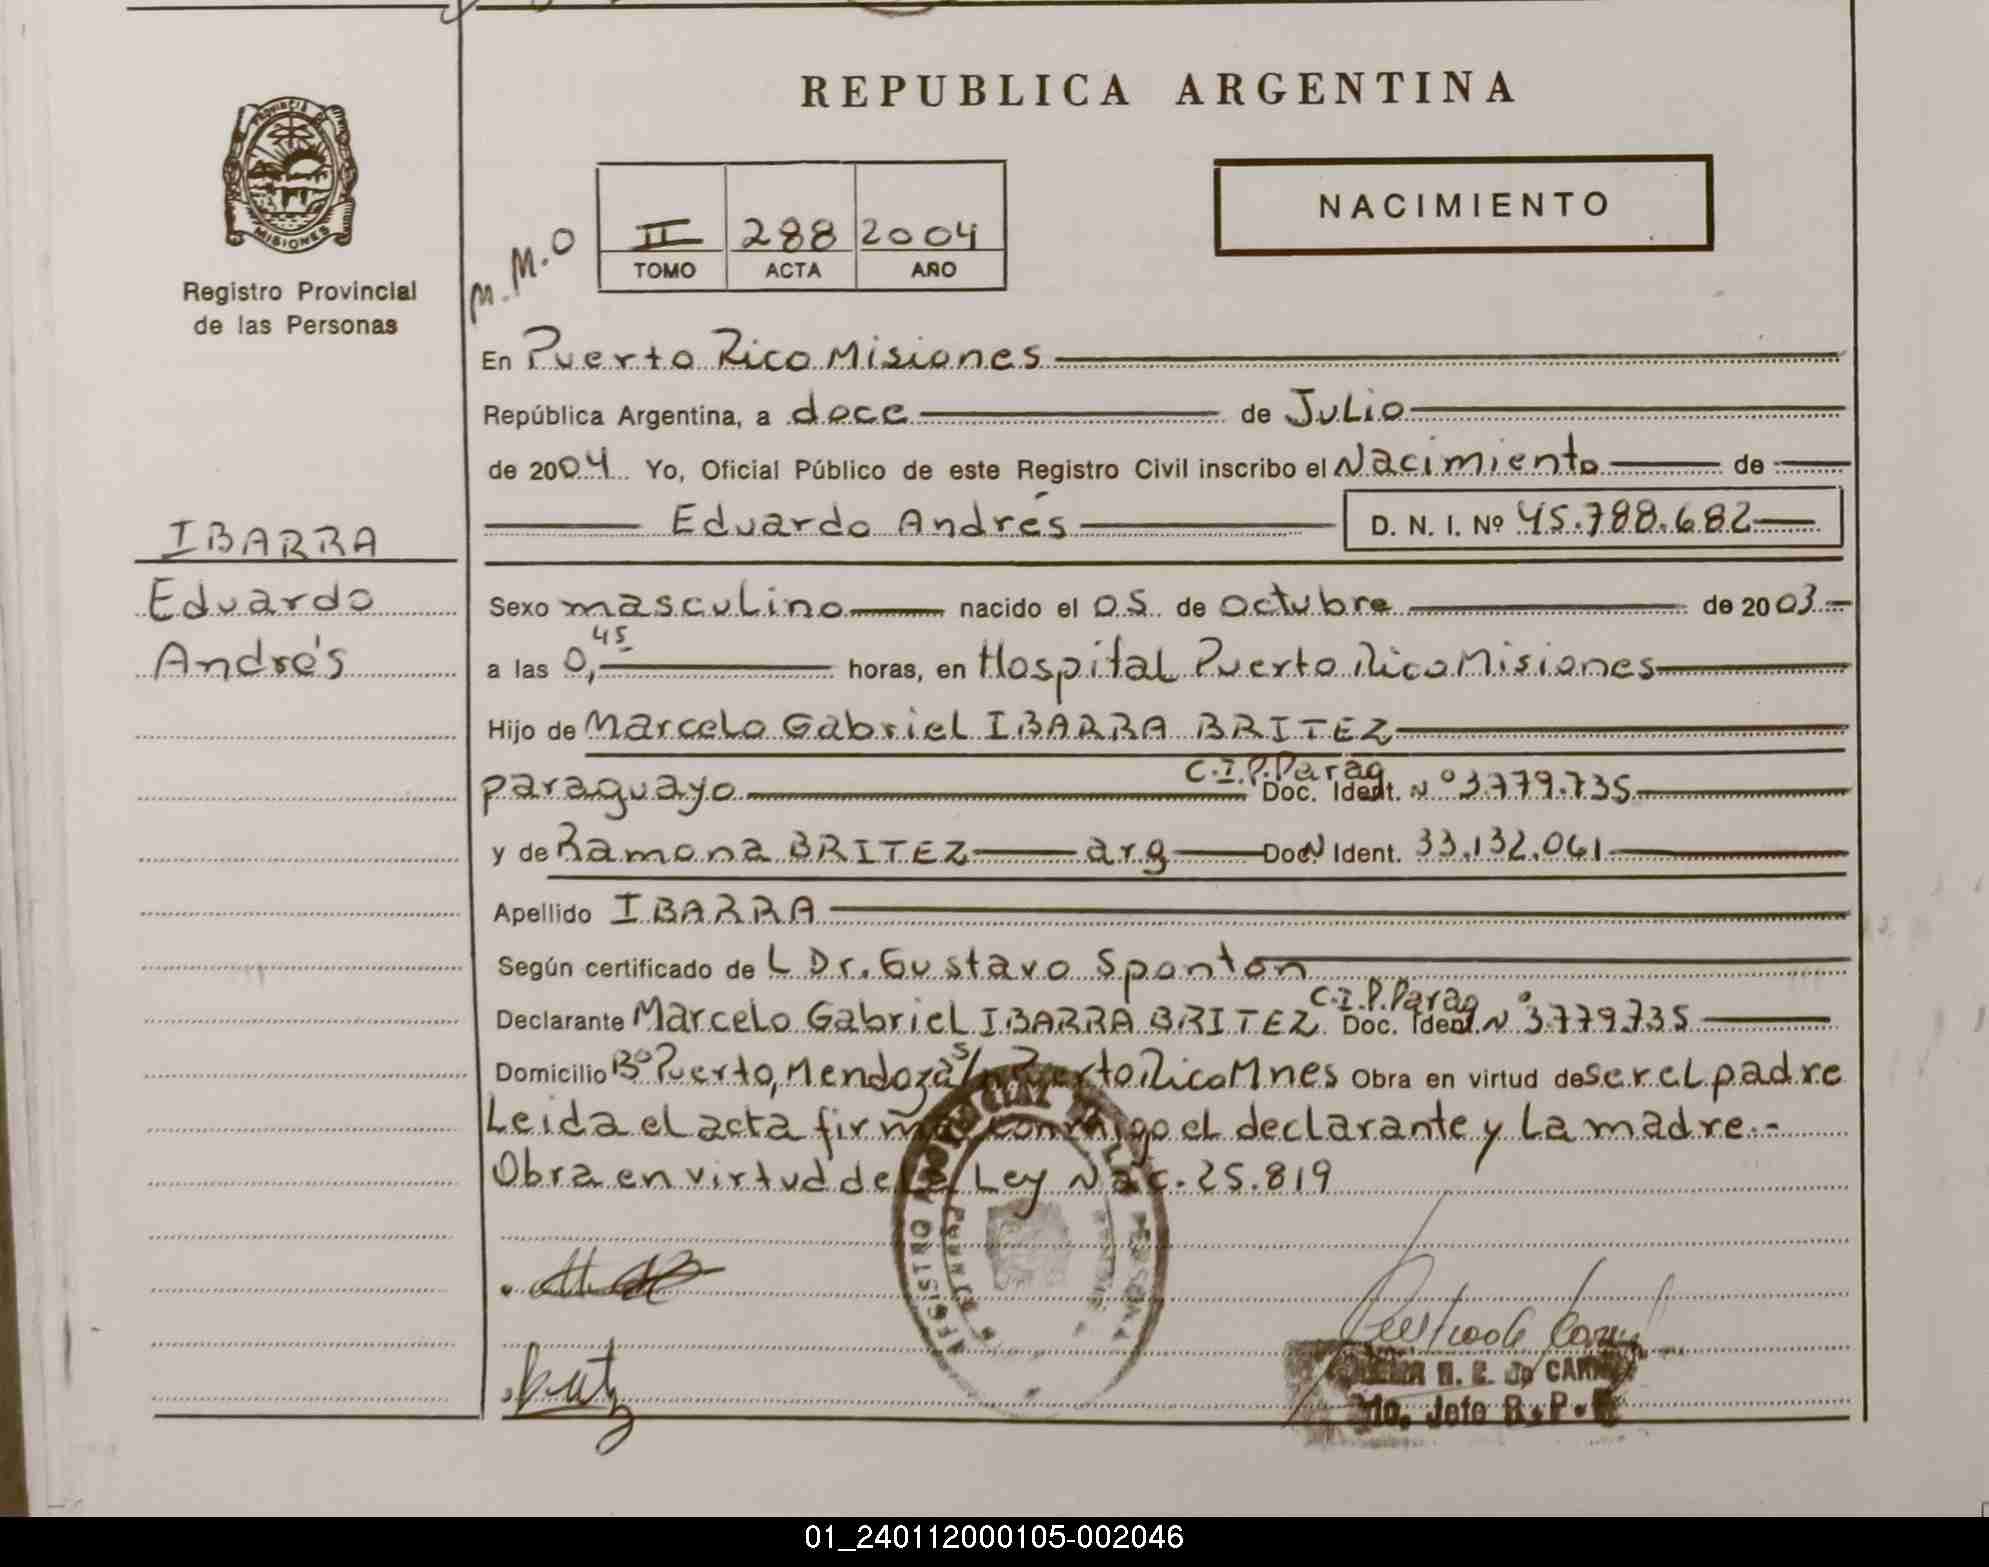 REPUBLICA ARGENTINA
PROVINCIA
MISIONES
Registro Provincial
de las Personas
M.M.O
II 288 2004
TOMO ACTA AÑO
NACIMIENTO
En Puerto Rico Misiones
República Argentina, a doce de Julio
de 2004 Yo, Oficial Público de este Registro Civil inscribo el Nacimiento de
Eduardo Andrés D. N. I. Nº 45.788.682
IBARRA
Eduardo
Andrés
Sexo masculino nacido el 05 de octubre de 2003
a las 0,45 horas, en Hospital Puerto Rico Misiones
Hijo de Marcelo Gabriel IBARRA BRITEZ
paraguayo C.I.P.Parag Doc. Ident. Nº 3.779.735
y de Ramona BRITEZ arg Doc. N Ident. 33.132.061
Apellido IBARRA
Según certificado de L Dr. Gustavo Sponton
Declarante Marcelo Gabriel IBARRA BRITEZ C.I.P.Parag Doc. Ident. Nº 3.779.735
Domicilio Bº Puerto, Mendoza s/n Puerto Rico Mnes Obra en virtud de ser el padre
Leida el acta firman conmigo el declarante y la madre.-
Obra en virtud de la Ley Nac. 25.819
REGISTRO PROVINCIAL DE LAS PERSONAS
R. E. de
Jefe R.P.
01_240112000105-002046